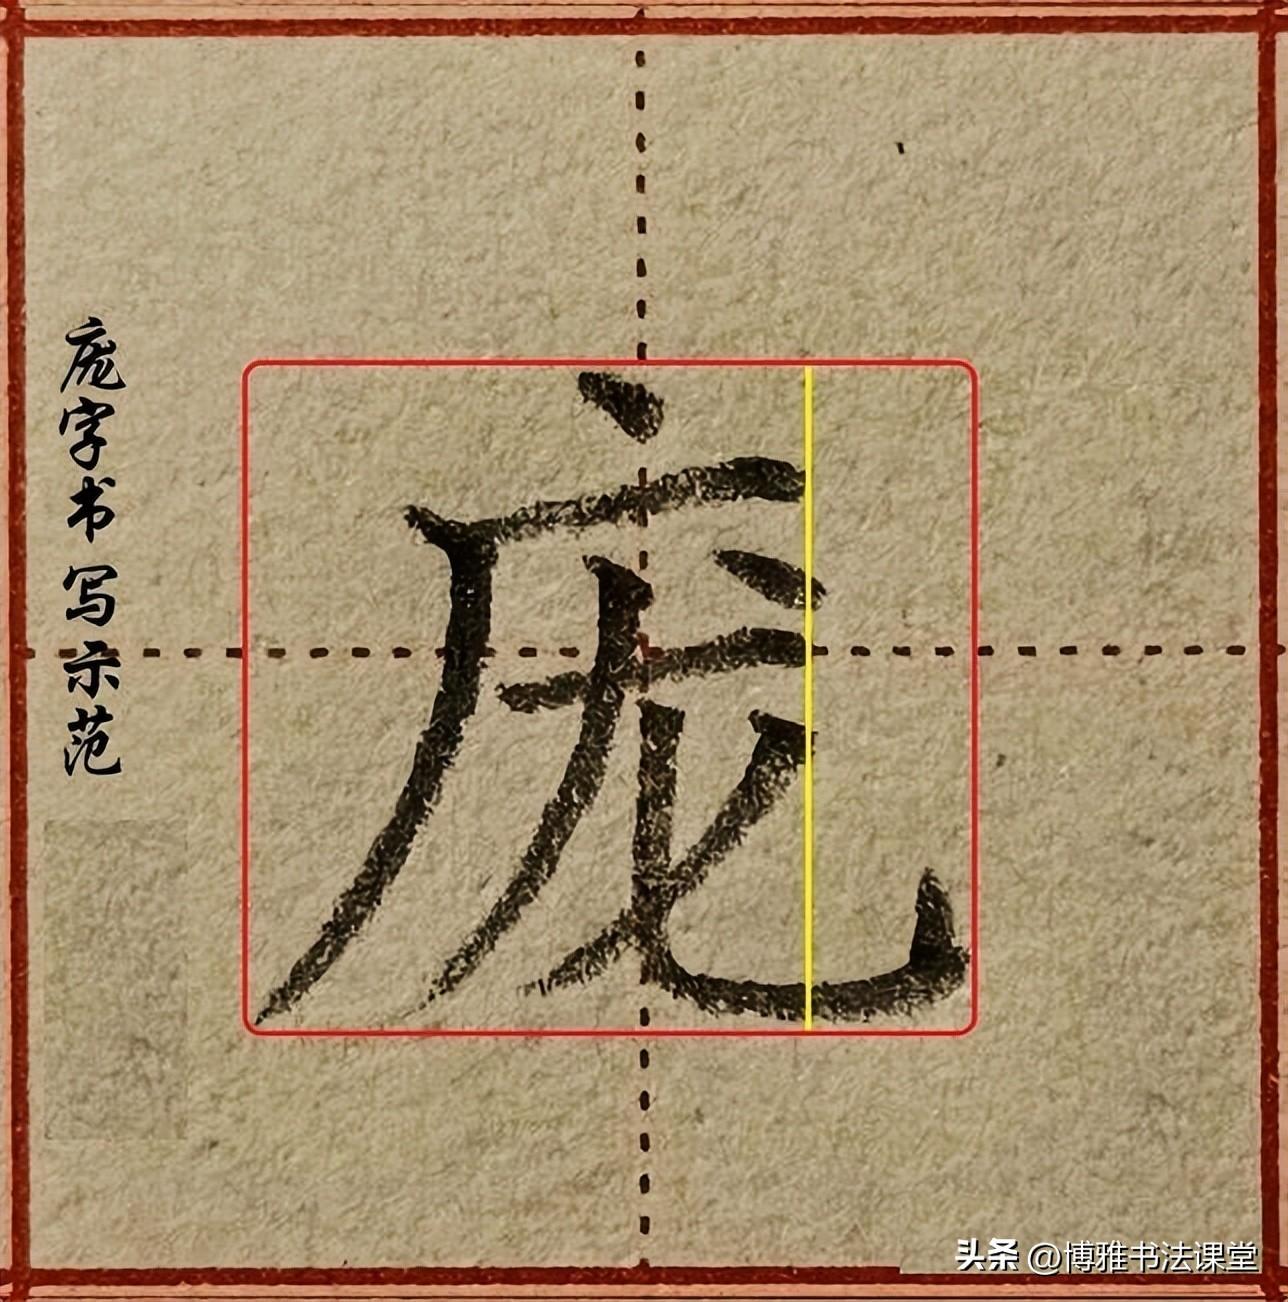 庞字书写示范
庞
头条 @博雅书法课堂